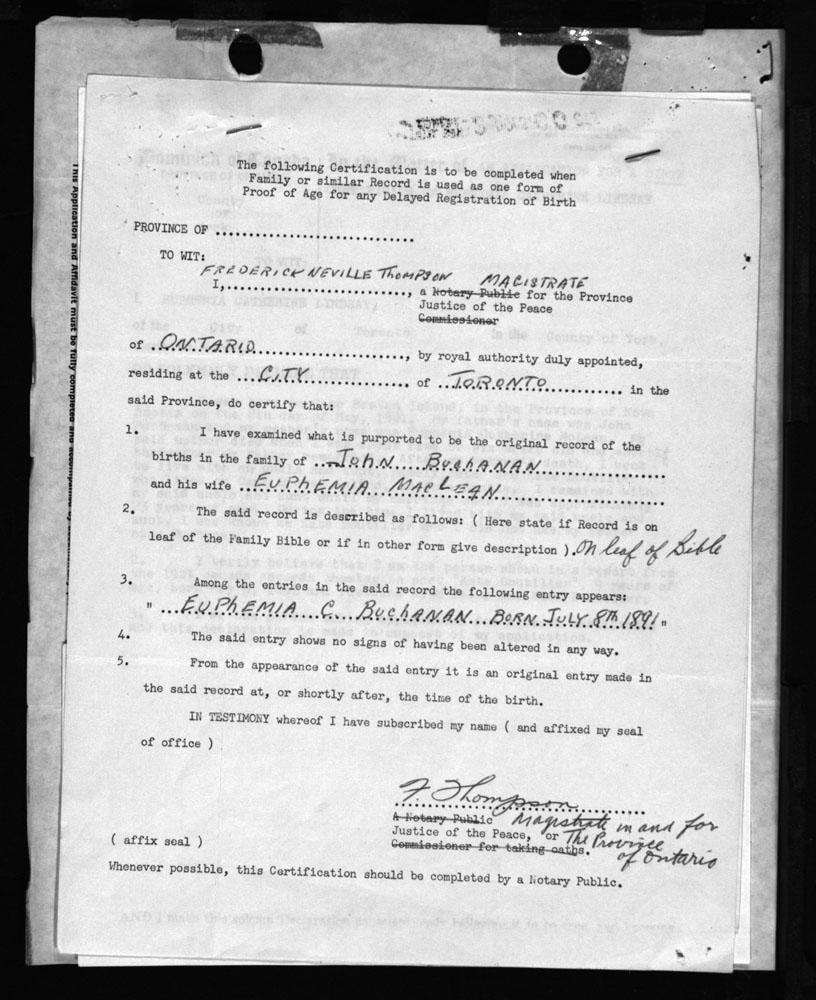 The following Certification is to be completed when
Family or similar Record is used as one form of
Proof of Age for any Delayed Registration of Birth
PROVINCE OF ..............................
TO WIT:
FREDERICK NEVILLE THOMPSON MAGISTRATE
I,..........................., a Notary Public for the Province
Justice of the Peace
Commissioner
of ..ONTARIO......................, by royal authority duly appointed,
residing at the ...CITY................. of ..TORONTO............. in the
said Province, do certify that:
1. I have examined what is purported to be the original record of the
births in the family of ..John Buchanan..................
and his wife ..EUPHEMIA MacLEAN........................
2. The said record is described as follows: ( Here state if Record is on
leaf of the Family Bible or if in other form give description ). On leaf of Bible
3. Among the entries in the said record the following entry appears:
" ...EUPHEMIA C. BUCHANAN BORN JULY 8th 1891 "
4. The said entry shows no signs of having been altered in any way.
5. From the appearance of the said entry it is an original entry made in
the said record at, or shortly after, the time of the birth.
IN TESTIMONY whereof I have subscribed my name ( and affixed my seal
of office )
F. Thompson
A Notary Public Magistrate in and for
Justice of the Peace, or The Province
Commissioner for taking oaths. of Ontario
( affix seal )
Whenever possible, this Certification should be completed by a Notary Public.
This Application and Affidavit must be fully completed and accompanied by